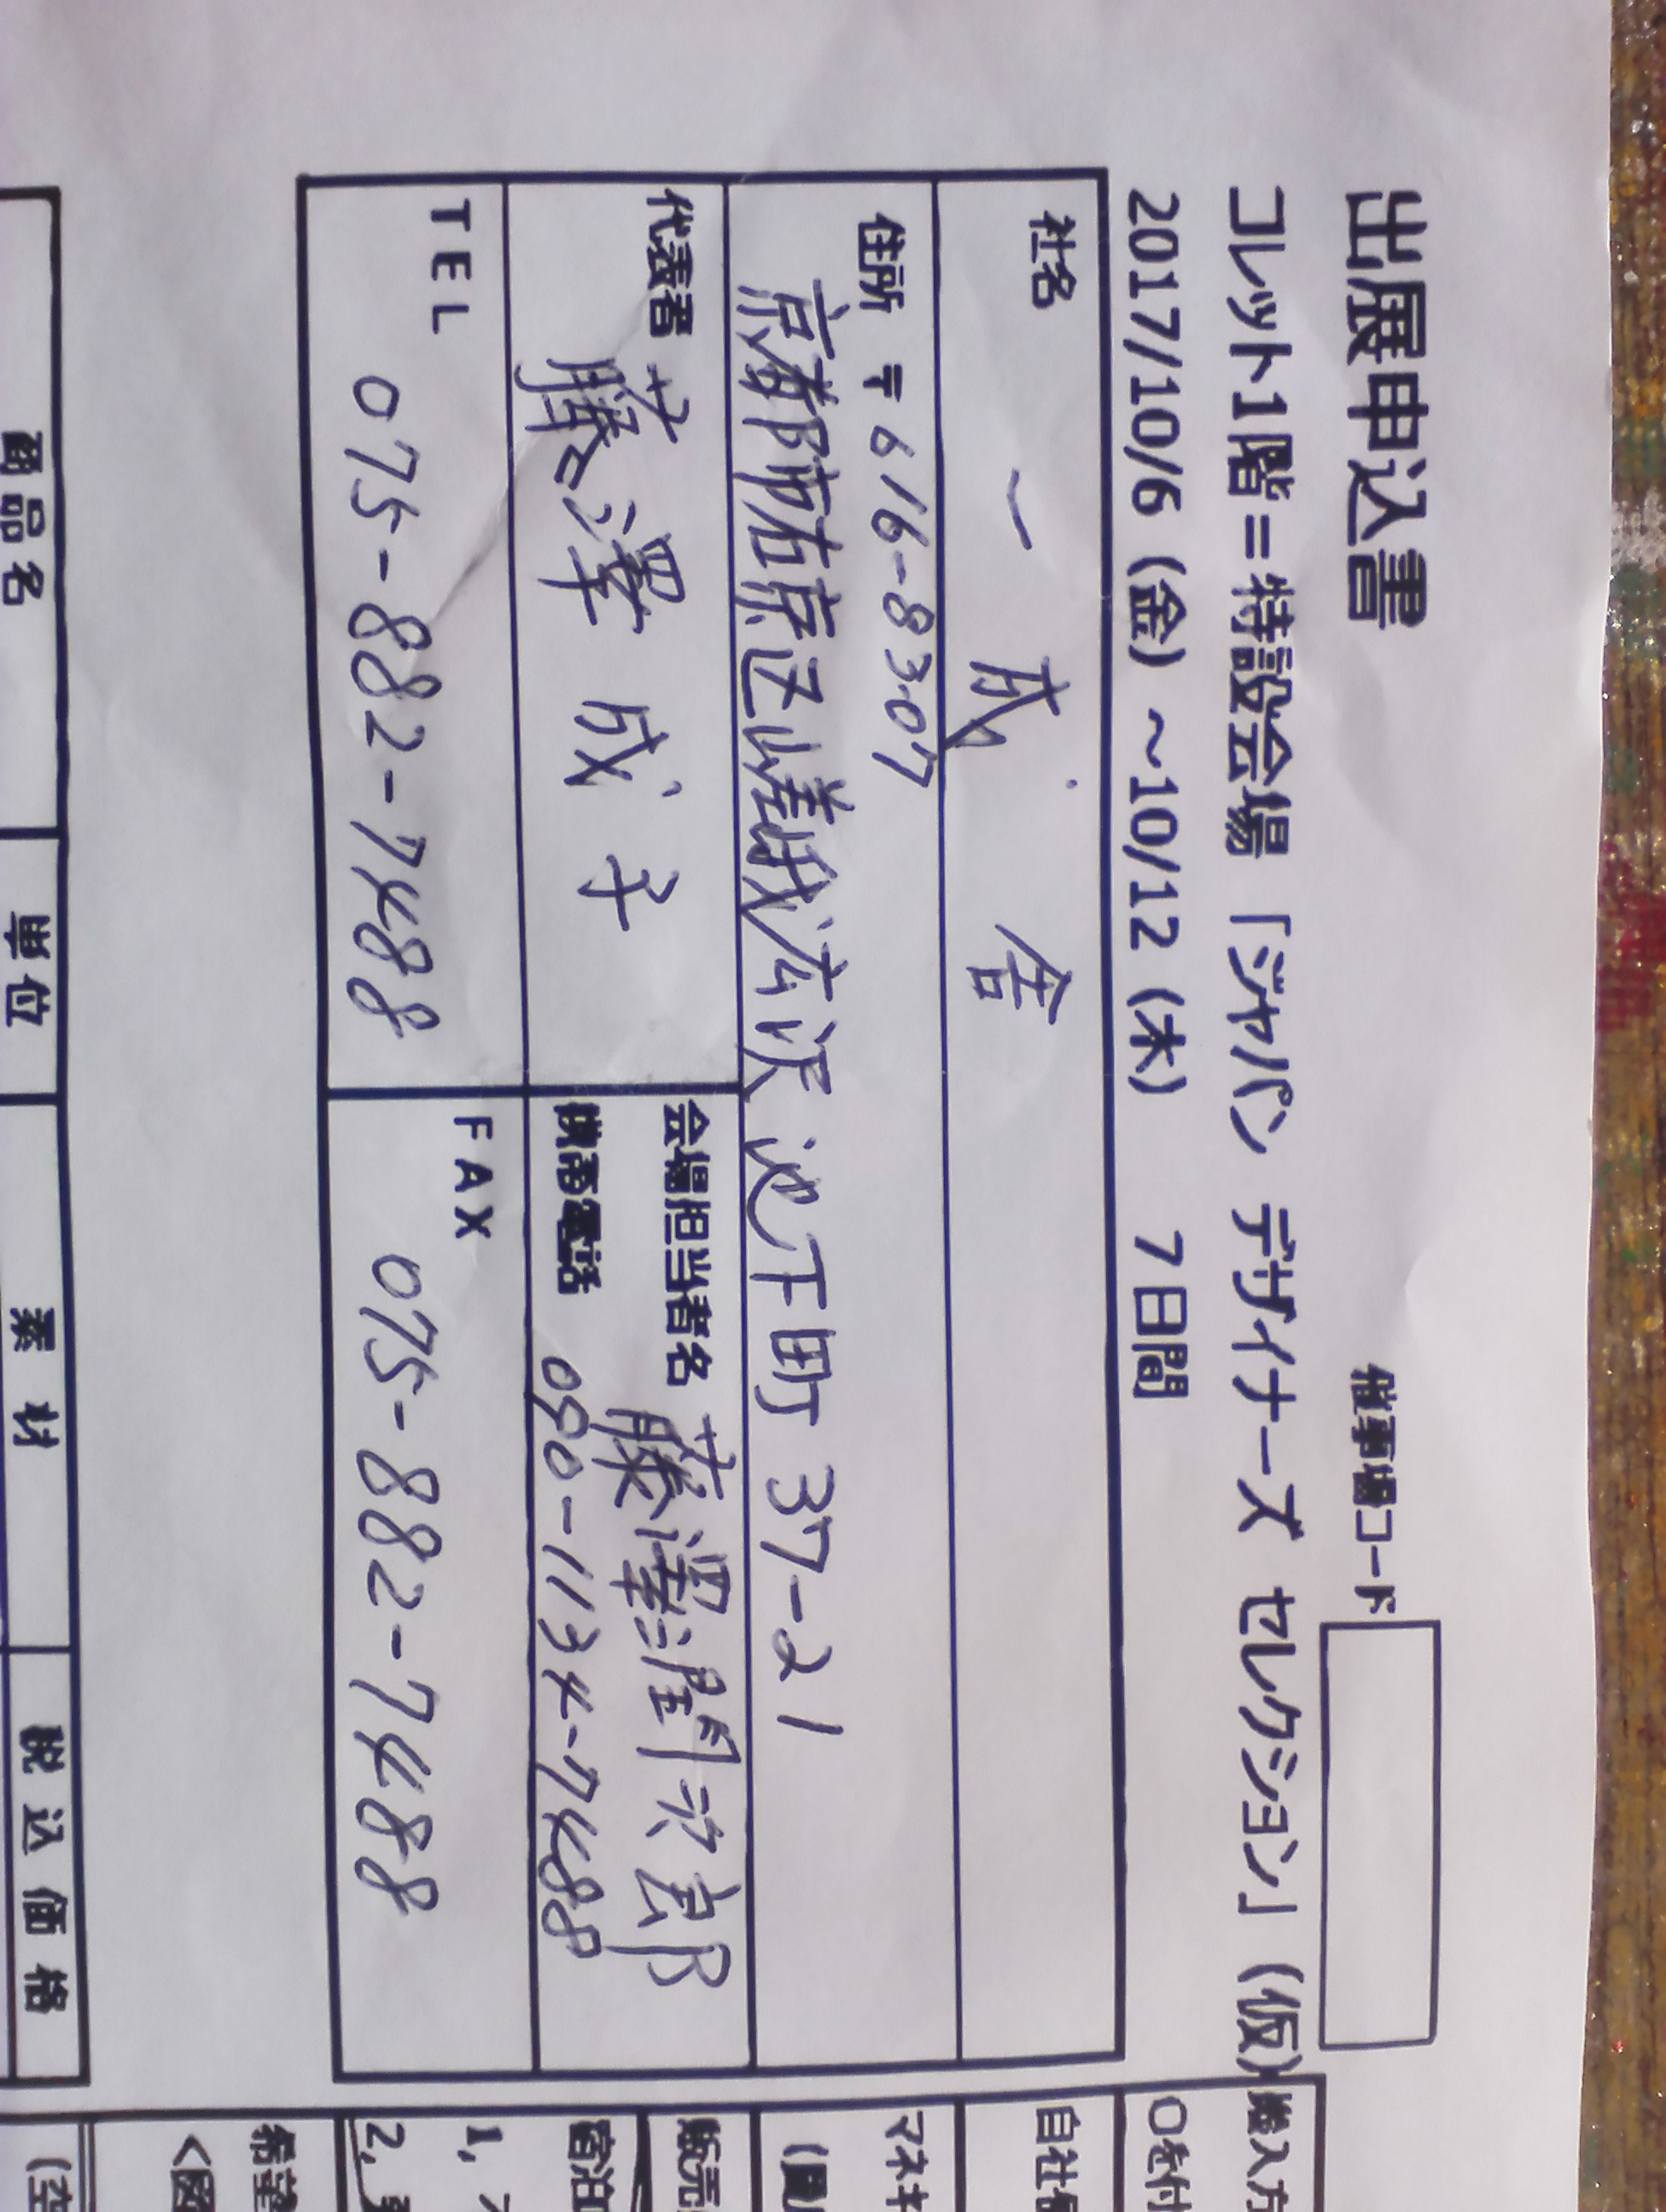 出展申込書
催事場コード
コレット1階=特設会場「ジャパン デザイナーズ セレクション」(仮)
2017/10/6(金)～10/12(木) 7日間
社名 一 舎
住所 〒616-8307
京都市右京区嵯峨広沢池下町37-21
代表者 藤澤 成子
会場担当者名 藤澤 次郎
携帯電話 090-1134-7488
TEL 075-882-7488
FAX 075-882-7488
商品名 単位 素材 税込価格
搬入方
○を付
自社
マネキ
販売
宿泊
1,
2,
希望